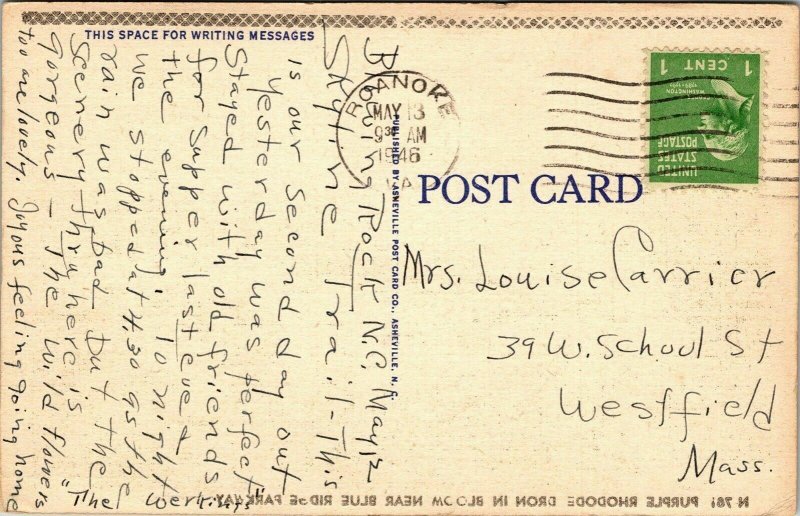 THIS SPACE FOR WRITING MESSAGES
Blowing Rock N.C. May 12
Skyline Trail - This
is our second day out
yesterday was perfect
Stayed with old friends
for supper last eve &
the evening. Tonight
we stopped at 4.30 as the
rain was bad but the
scenery thru here is
gorgeous - The wild flowers
too are lovely. Joyous feeling going home
"The
ROANORE
MAY 13
9 30 AM
1946
VA
PUBLISHED BY ASHEVILLE POST CARD CO., ASHEVILLE, N. C.
POST CARD
UNITED
STATES
POSTAGE
GEORGE
WASHINGTON
1789-1797
1 CENT 1
Mrs. Louise Carrier
39 W. School St
Westfield
Mass.
N 781 PURPLE RHODODENDRON IN BLOOM NEAR BLUE RIDGE PARKWAY